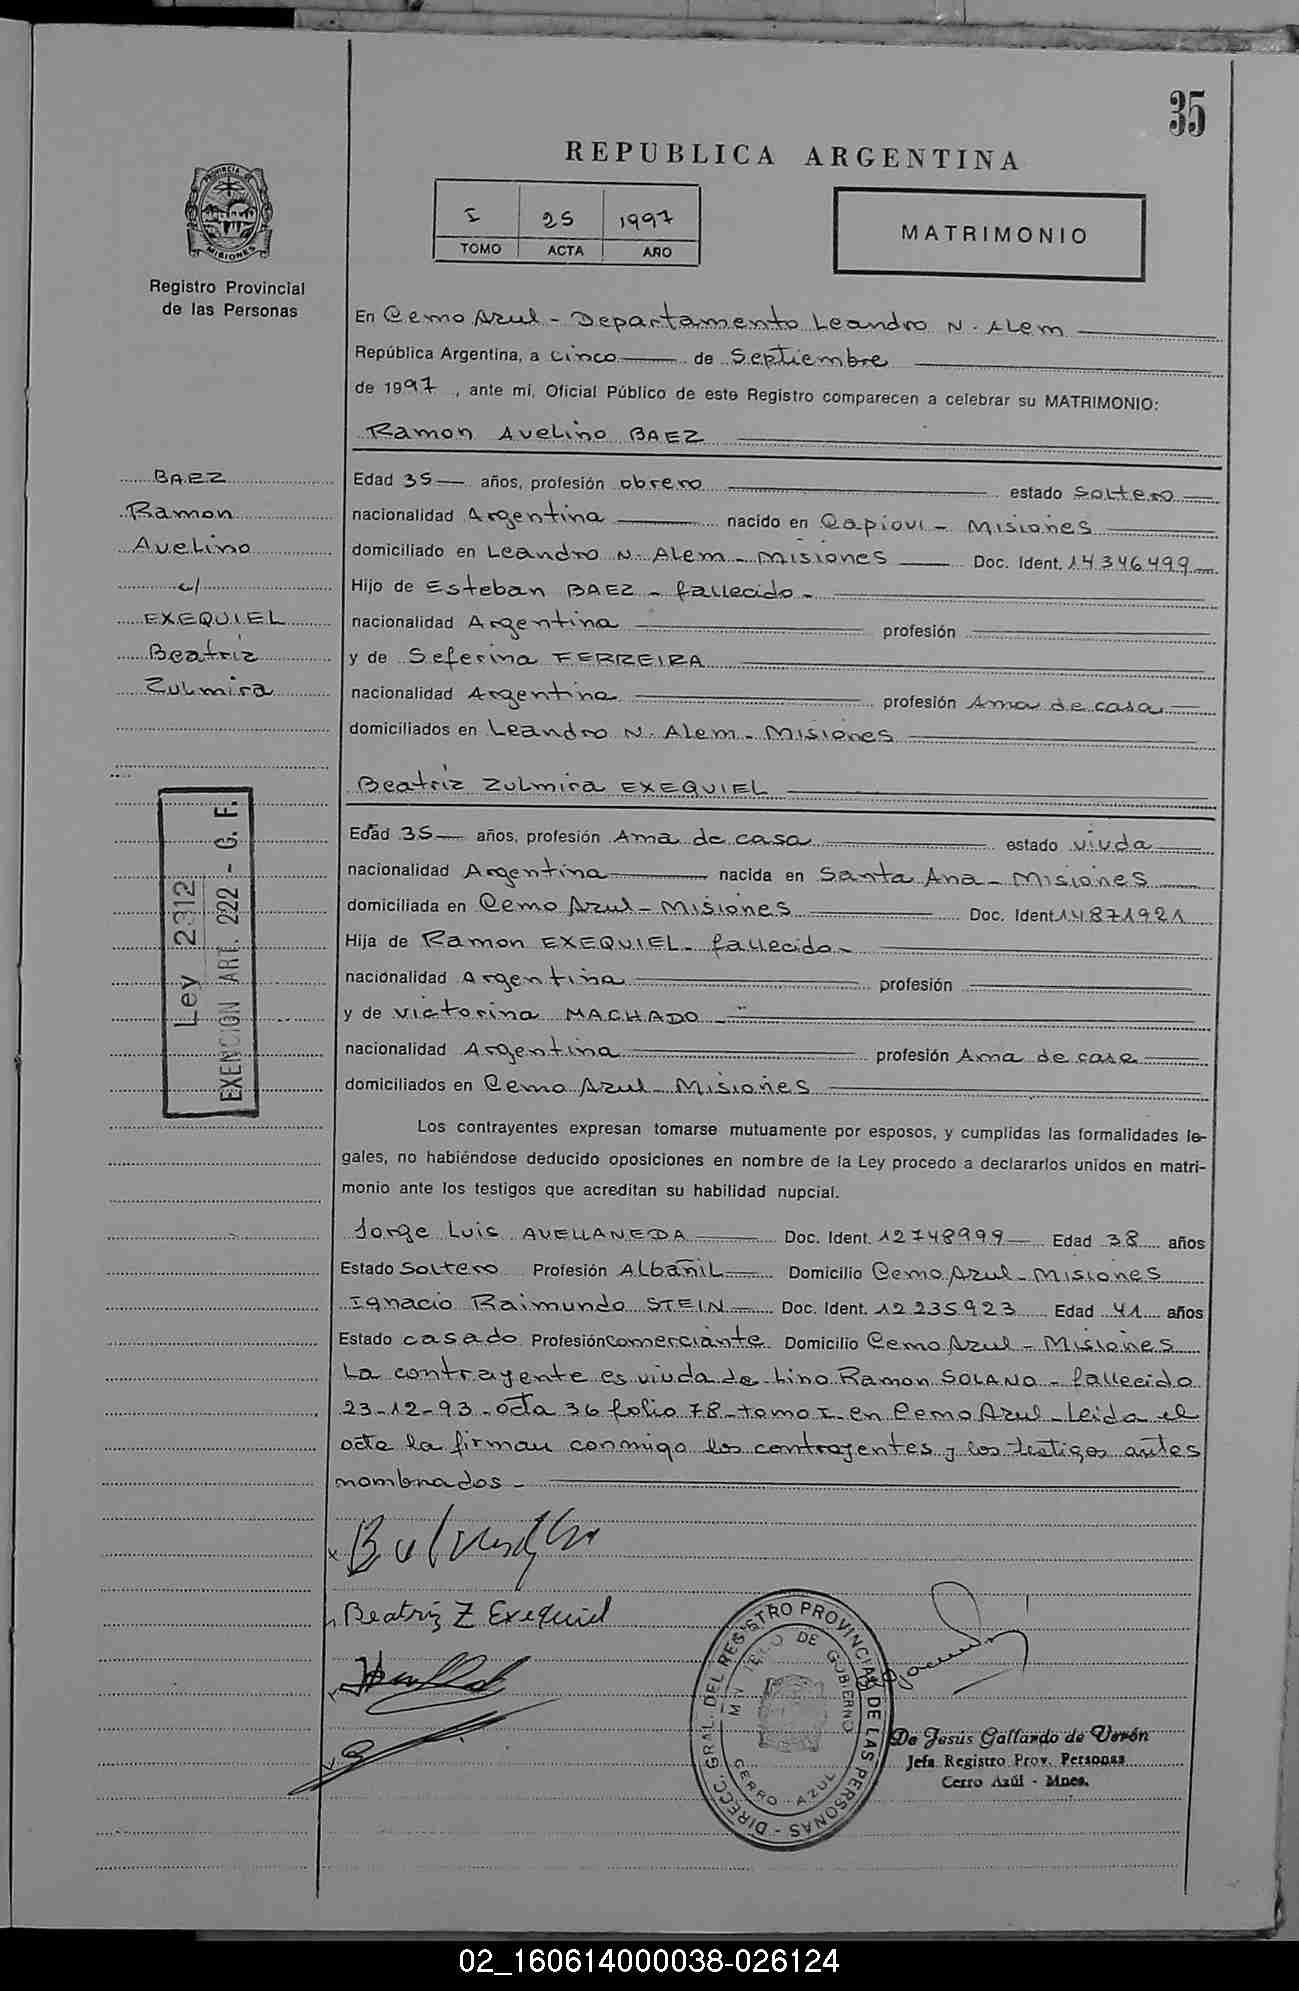 35
REPUBLICA ARGENTINA
PROVINCIA DE
MISIONES
Registro Provincial
de las Personas
I 25 1997
TOMO ACTA AÑO
MATRIMONIO
En Cerro Azul - Departamento Leandro N. Alem
República Argentina, a cinco de Septiembre
de 1997, ante mi, Oficial Público de este Registro comparecen a celebrar su MATRIMONIO:
Ramon Avelino BAEZ
BAEZ
Ramon
Avelino
c/
EXEQUIEL
Beatriz
Zulmira
Edad 35 años, profesión obrero estado Soltero
nacionalidad Argentina nacido en Capiovi - Misiones
domiciliado en Leandro N. Alem - Misiones Doc. Ident. 14346499
Hijo de Esteban BAEZ - fallecido -
nacionalidad Argentina profesión
y de Seferina FERREIRA
nacionalidad Argentina profesión Ama de casa
domiciliados en Leandro N. Alem - Misiones
Beatriz Zulmira EXEQUIEL
Edad 35 años, profesión Ama de casa estado viuda
nacionalidad Argentina nacida en Santa Ana - Misiones
domiciliada en Cerro Azul - Misiones Doc. Ident 14871921
Hija de Ramon EXEQUIEL - fallecido -
nacionalidad Argentina profesión
y de Victorina MACHADO -
nacionalidad Argentina profesión Ama de casa
domiciliados en Cerro Azul - Misiones
Ley 2312
EXENCION ART. 222 - G. F.
Los contrayentes expresan tomarse mutuamente por esposos, y cumplidas las formalidades le-
gales, no habiéndose deducido oposiciones en nombre de la Ley procedo a declararlos unidos en matri-
monio ante los testigos que acreditan su habilidad nupcial.
Jorge Luis AVELLANEDA Doc. Ident. 12748999 Edad 38 años
Estado Soltero Profesión Albañil Domicilio Cerro Azul - Misiones
Ignacio Raimundo STEIN Doc. Ident. 12235923 Edad 41 años
Estado casado Profesión comerciante Domicilio Cerro Azul - Misiones
La contrayente es viuda de Lino Ramon SOLANO - fallecido
23-12-93 - acta 36 folio 78 - tomo I - en Cerro Azul - Leida el
acta la firman conmigo los contrayentes y los testigos antes
nombrados -
Beatriz Z Exequiel
DIRECC. GRAL. DEL REGISTRO PROVINCIAL DE LAS PERSONAS -
MINISTERIO DE GOBIERNO
CERRO - AZUL
De Jesús Gallardo de Verón
Jefa Registro Prov. Personas
Cerro Azúl - Mnes.
02_160614000038-026124